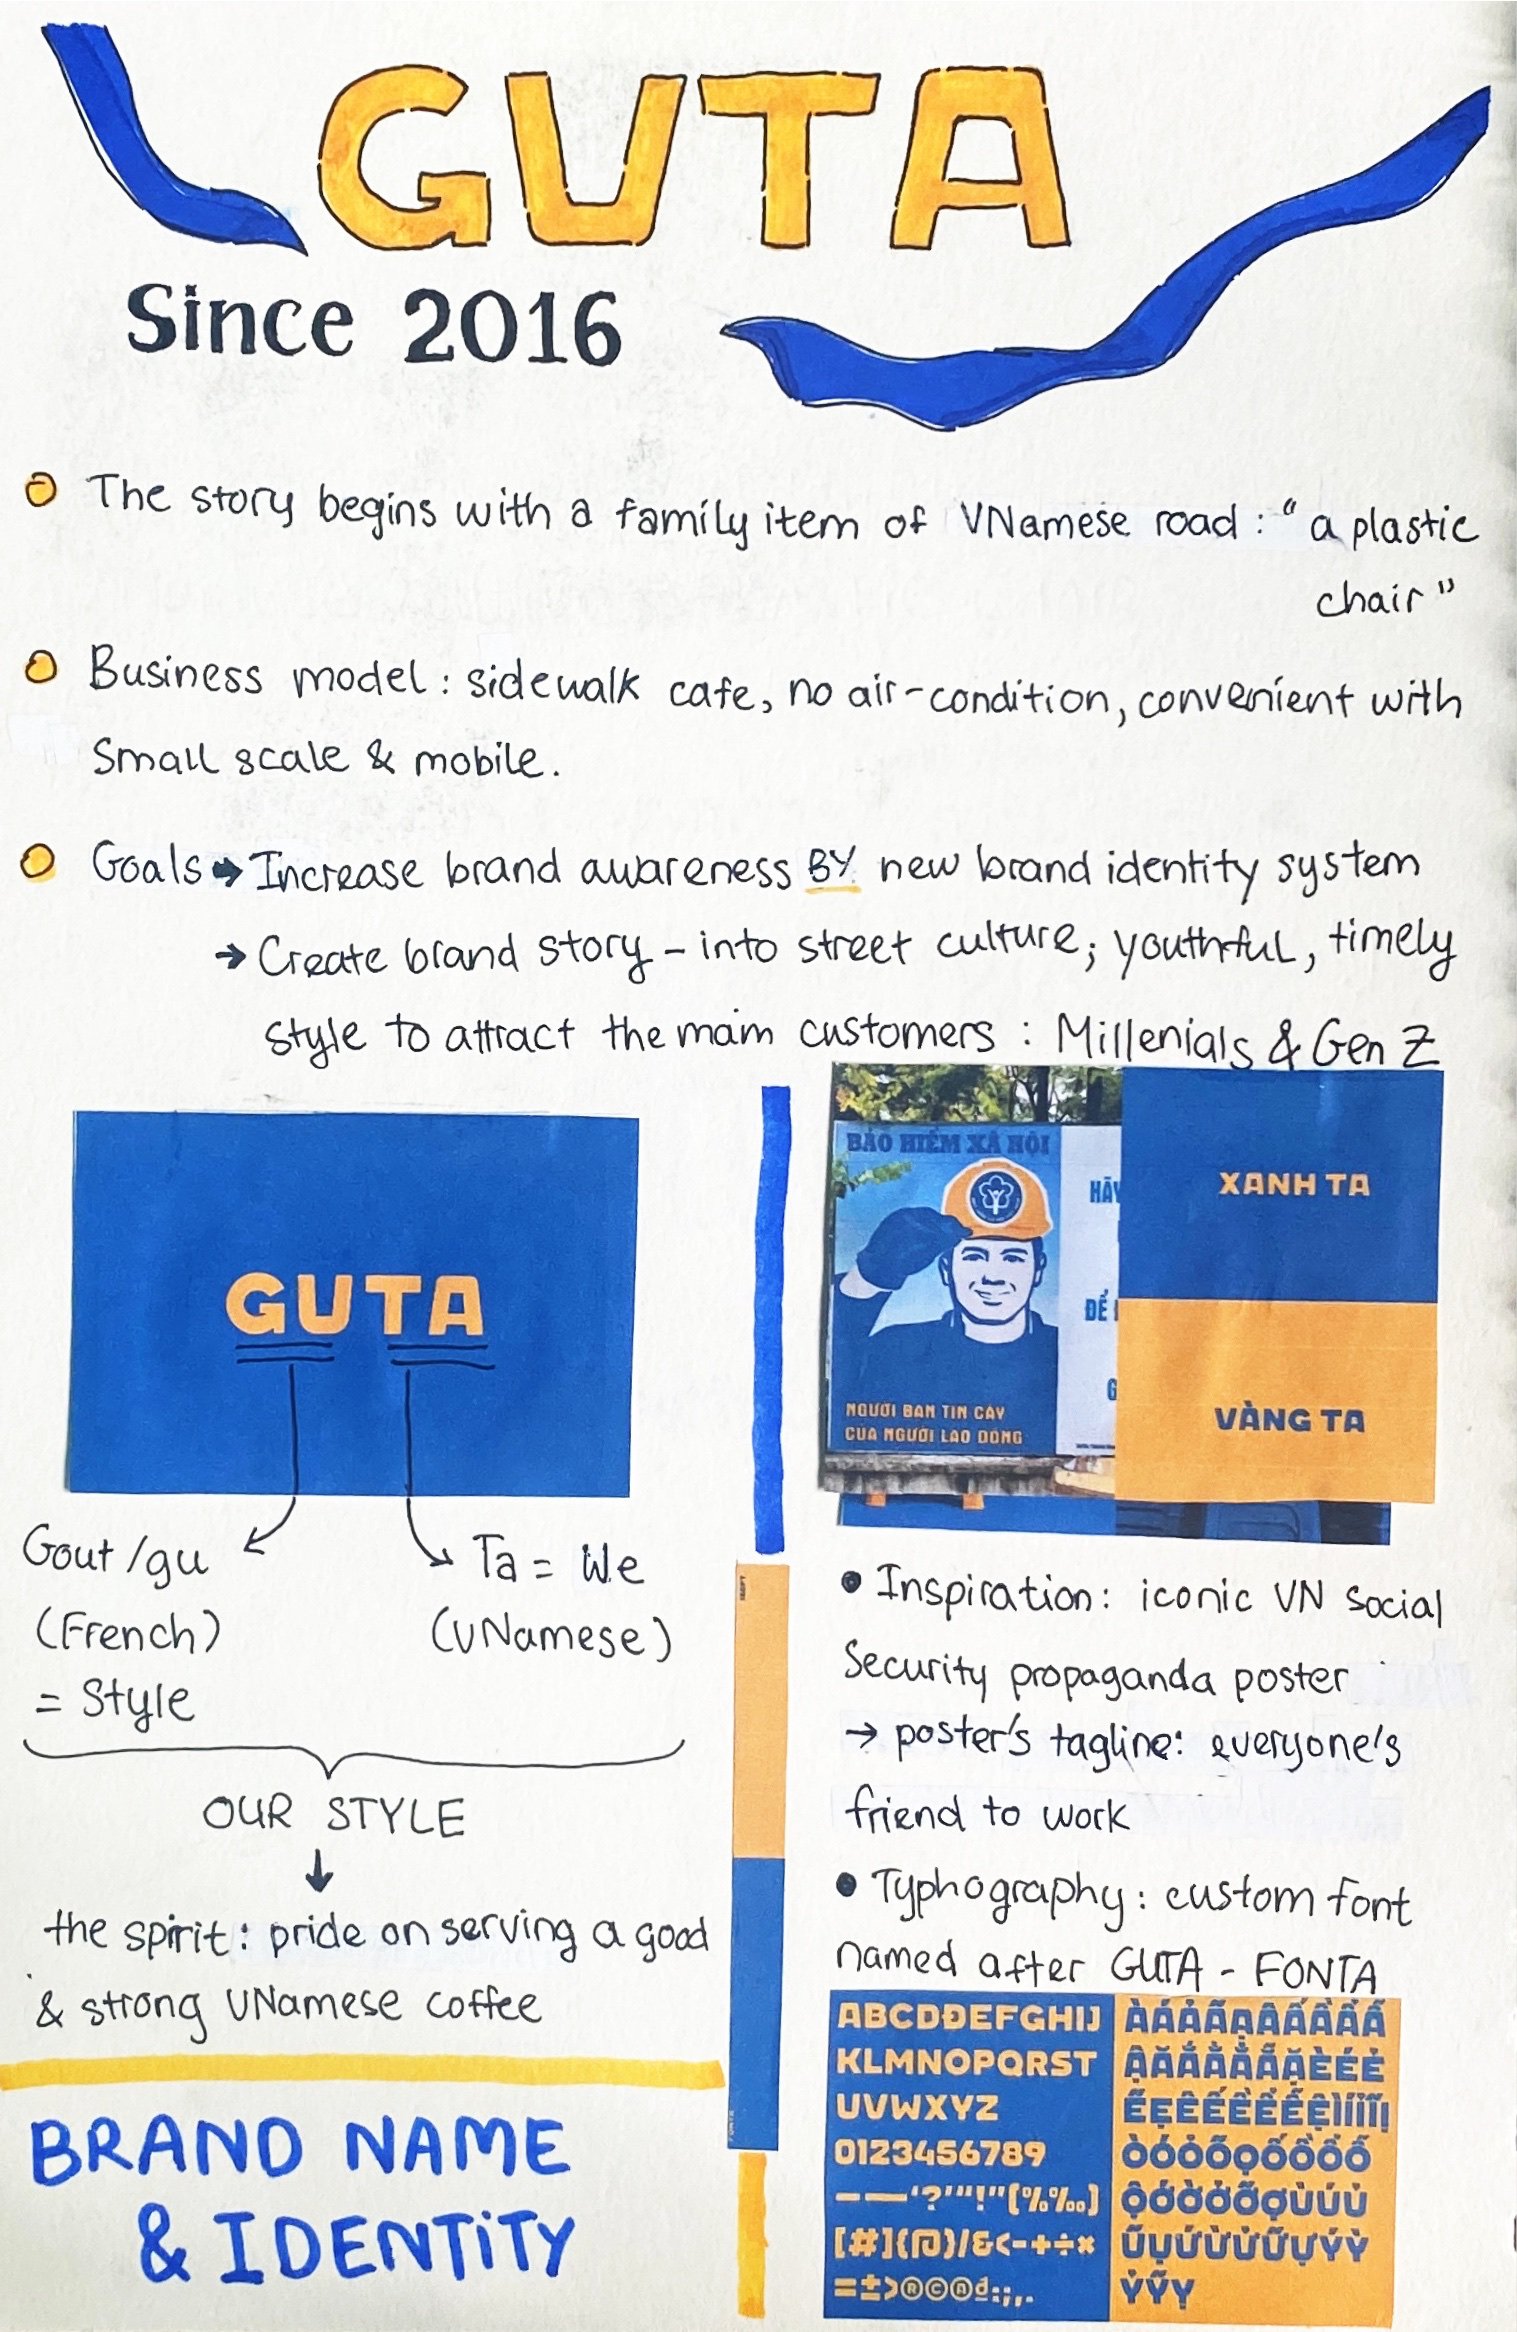 GUTA
Since 2016
The story begins with a family item of VNamese road : "a plastic
chair"
Business model : sidewalk cafe, no air-condition, convenient with
small scale & mobile.
Goals → Increase brand awareness BY new brand identity system
→ Create brand story - into street culture; youthful, timely
style to attract the main customers : Millenials & Gen Z
GUTA
Gout /gu
(French)
= Style
Ta = We
(VNamese)
OUR STYLE
the spirit : pride on serving a good
& strong VNamese coffee
BRAND NAME
& IDENTITY
BẢO HIỂM XÃ HỘI
HÃY
ĐỂ
G
NGƯỜI BẠN TIN CẬY
CỦA NGƯỜI LAO ĐỘNG
XANH TA
VÀNG TA
• Inspiration : iconic VN social
security propaganda poster
→ poster's tagline: everyone's
friend to work
• Typhography : custom font
named after GUTA - FONTA
ABCDĐEFGHIJ
KLMNOPQRST
UVWXYZ
0123456789
–—‘?’“!”(%‰)
[#]{@}/&<-+÷×
=±>®©đ:;,.
ÀÁẢÃẠÂẤẦẨẪ
ẬĂẮẰẲẴẶÈÉẺ
ẼẸÊẾỀỂỄỆÌÍỈĨỊ
ÒÓỎÕỌỐỒỔỖ
ỘỚỜỞỠỢÙÚỦ
ŨỤỨỪỬỮỰÝỲ
ỶỸỴ